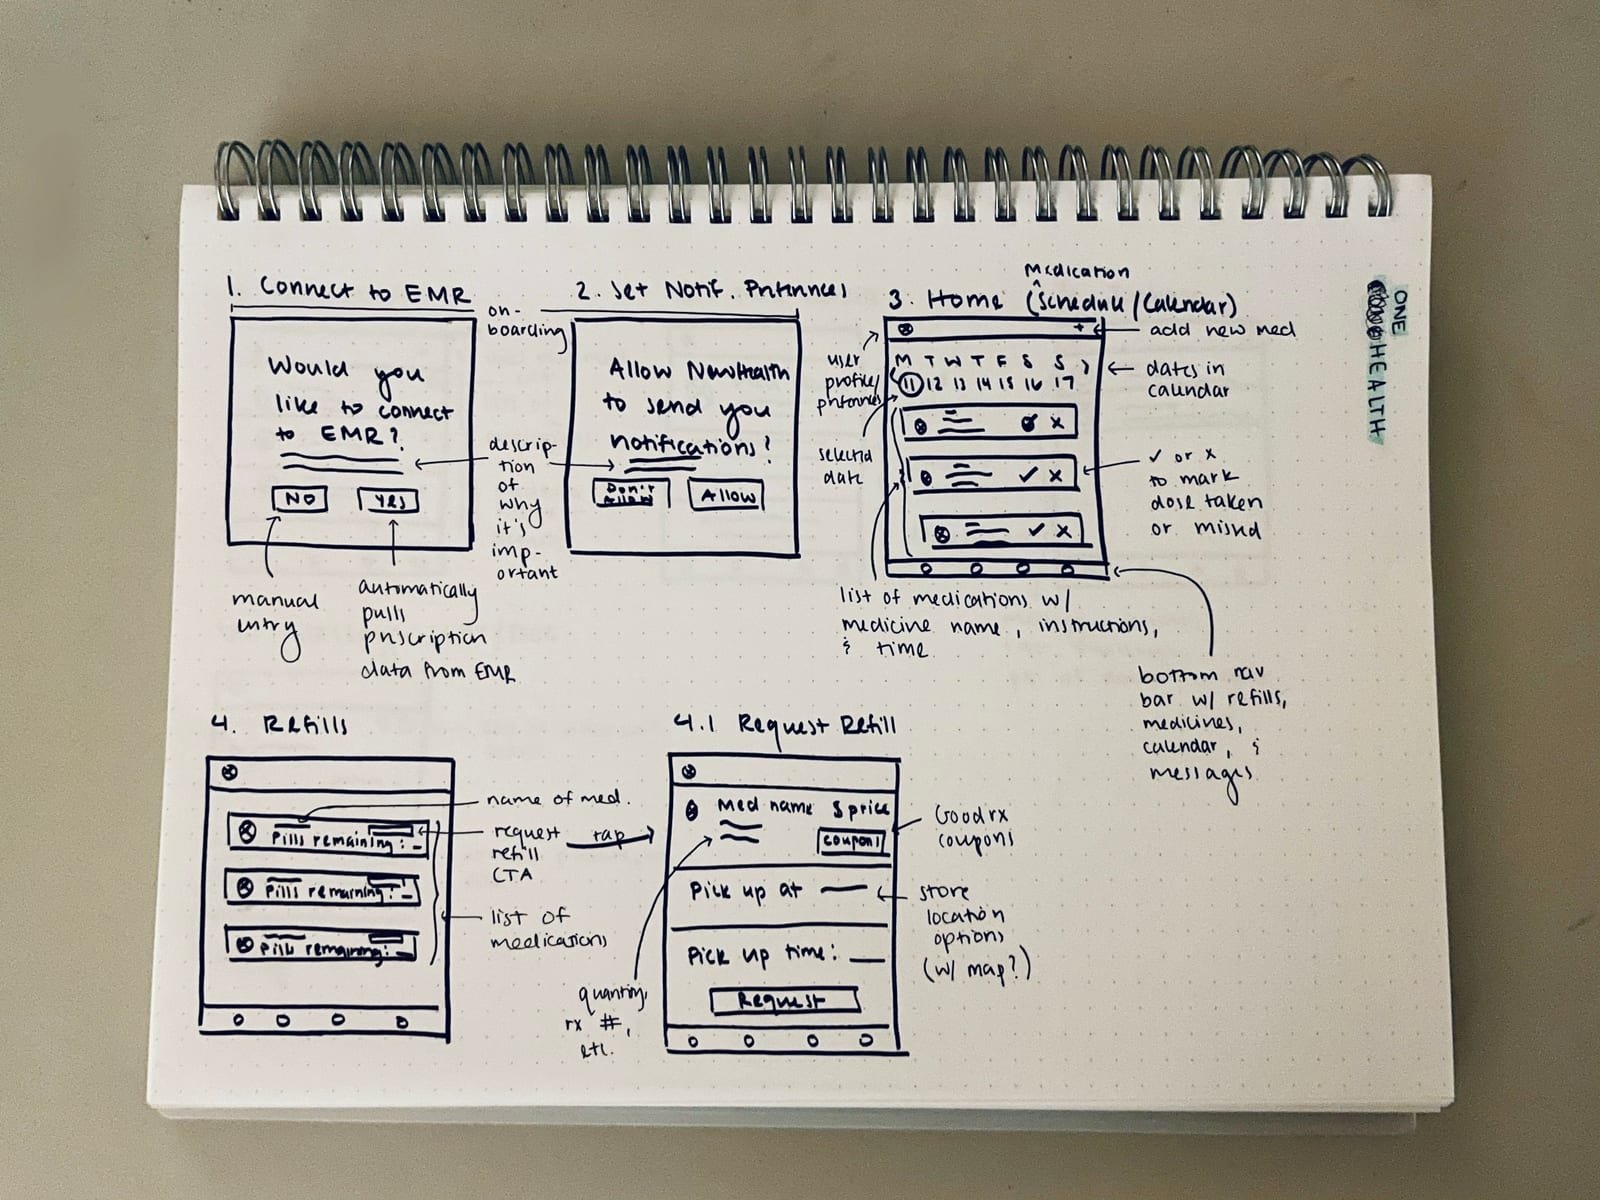 1. Connect to EMR
on-
boarding
Would you
like to connect
to EMR?
NO
YES
manual
entry
automatically
pulls
prescription
data from EMR
descrip-
tion
of
why
it's
imp-
ortant
2. Set Notif. Preferences
Allow NewHealth
to send you
notifications?
Don't
Allow
Allow
Medication
3. Home (Schedule/Calendar)
+
add new med
user
profile/
preferences
M T W T F S S >
11 12 13 14 15 16 17
dates in
calendar
selected
date
✓ or x
to mark
dose taken
or missed
list of medications w/
medicine name, instructions,
& time
bottom nav
bar w/ refills,
medicines,
calendar, &
messages
4. Refills
Pills remaining: _
Pills remaining: _
Pills remaining: _
name of med.
request
refill
CTA
tap
list of
medications
4.1 Request Refill
Med name $ price
coupon
Goodrx
coupons
Pick up at
store
location
options
(w/ map?)
Pick up time:
Request
quantity,
rx #,
etc.
ONE
HEALTH